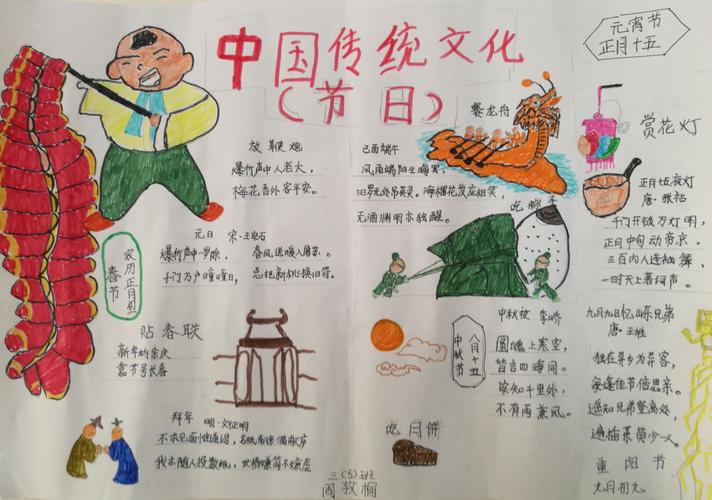 中国传统文化
（节日）
元宵节
正月十五
赛龙舟
赏花灯
放鞭炮
爆竹声中人老大，
梅花香外客平安。
己酉端午
风雨端阳生晦冥，
汨罗无处吊英灵。海榴花发应相笑，
无酒渊明亦独醒。
吃粽子
正月十五夜灯
唐·张祜
千门开锁万灯明，
正月中旬动帝京。
三百内人连袖舞，
一时天上著词声。
元日 宋·王安石
爆竹声中一岁除， 春风送暖入屠苏。
千门万户曈曈日， 总把新桃换旧符。
春节
农历正月初一
贴春联
新年纳余庆
嘉节号长春
中秋夜 李峤
圆魄上寒空，
皆言四海同。
安知千里外，
不有雨兼风。
八月十五
中秋节
吃月饼
九月九日忆山东兄弟
唐·王维
独在异乡为异客，
每逢佳节倍思亲。
遥知兄弟登高处，
遍插茱萸少一人。
重阳节
九月初九
拜年 明·文征明
不求见面惟通谒，名纸朝来满敝庐
我亦随人投数纸，世情嫌简不嫌虚
三(5)班
周孜桐